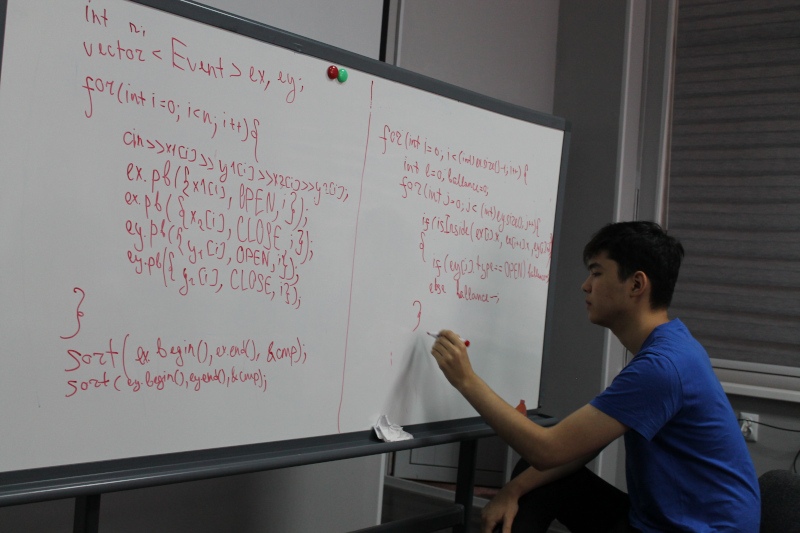 int n;
vector < Event > ex, ey;
for(int i=0; i<n, i++){
cin>>x1[i]>>y1[i]>>x2[i]>>y2[i];
ex.pb({x1[i], OPEN, i});
ex.pb({x2[i], CLOSE, i});
ey.pb({y1[i], OPEN, i});
ey.pb({y2[i], CLOSE, i});
}
sort( ex.begin(), ex.end(), &cmp);
sort( ey.begin(), ey.end(), &cmp);
for(int i=0, i<(int) i++) {
int l=0, ballance=0;
for(int j=0; j<(int)ey.size(), j++){
if(isInside(ex[i].x, ex[i+1].x,
{
if(ey[j].type==OPEN)
else ballance--;
}